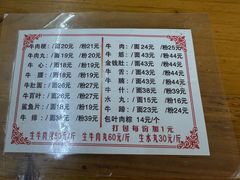 牛肉粿：/面20元 /粉21元
牛肉丸：/面19元 /粉20元
牛心：/面18元 /粉19元
牛腰：/面18元 /粉19元
牛肚面：/面18元 /粉19元
牛百叶：/面18元 /粉19元
鲨鱼片：/面18元 /粉19元
牛排：/面38元 /粉39元
牛肉：/面24元 /粉25元
牛筋：/面43元 /粉44元
金钱肚：/面43元 /粉44元
牛舌：/面43元 /粉44元
牛腩：/面43元 /粉44元
牛杂：/面38元 /粉39元
水丸：/面15元 /粉16元
墨斗：/面23元 /粉24元
包叶肉粽 14元/个
打包每份加1元
生牛肉丸60元/斤 生水丸30元/斤